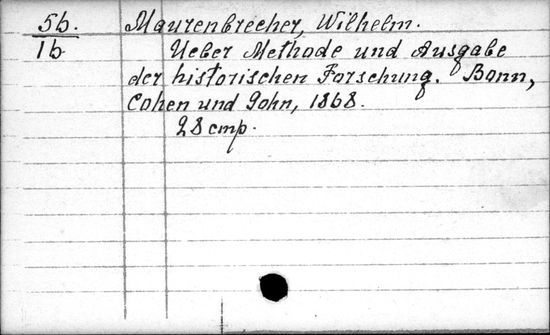 5b. Maurenbrecher, Wilhelm.
1b Ueber Methode und Ausgabe
der historischen Forschung. Bonn,
Cohen und Sohn, 1868.
28 cmp.